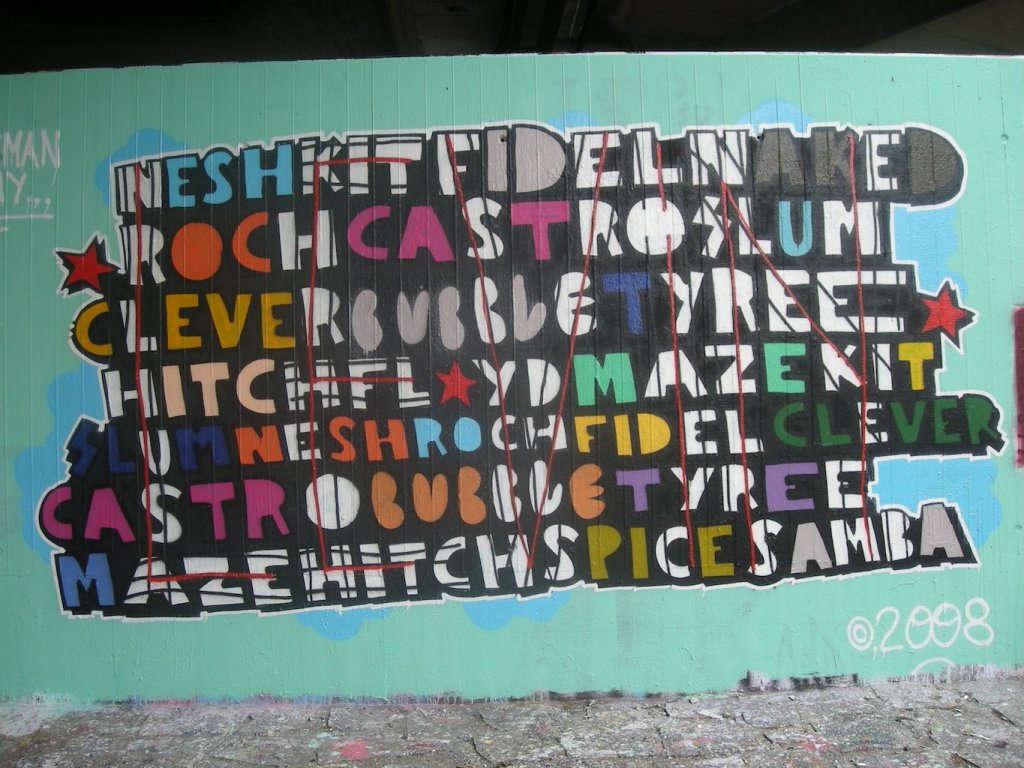 NESHKITFIDELNAKED
ROCHCASTROSLUM
CLEVERBUBBLETYREE
HITCHFL★YDMAZEKIT
SLUMNESHROCHFIDELCLEVER
CASTROBUBBLETYREE
MAZEHITCHSPICESAMBA
©,2008